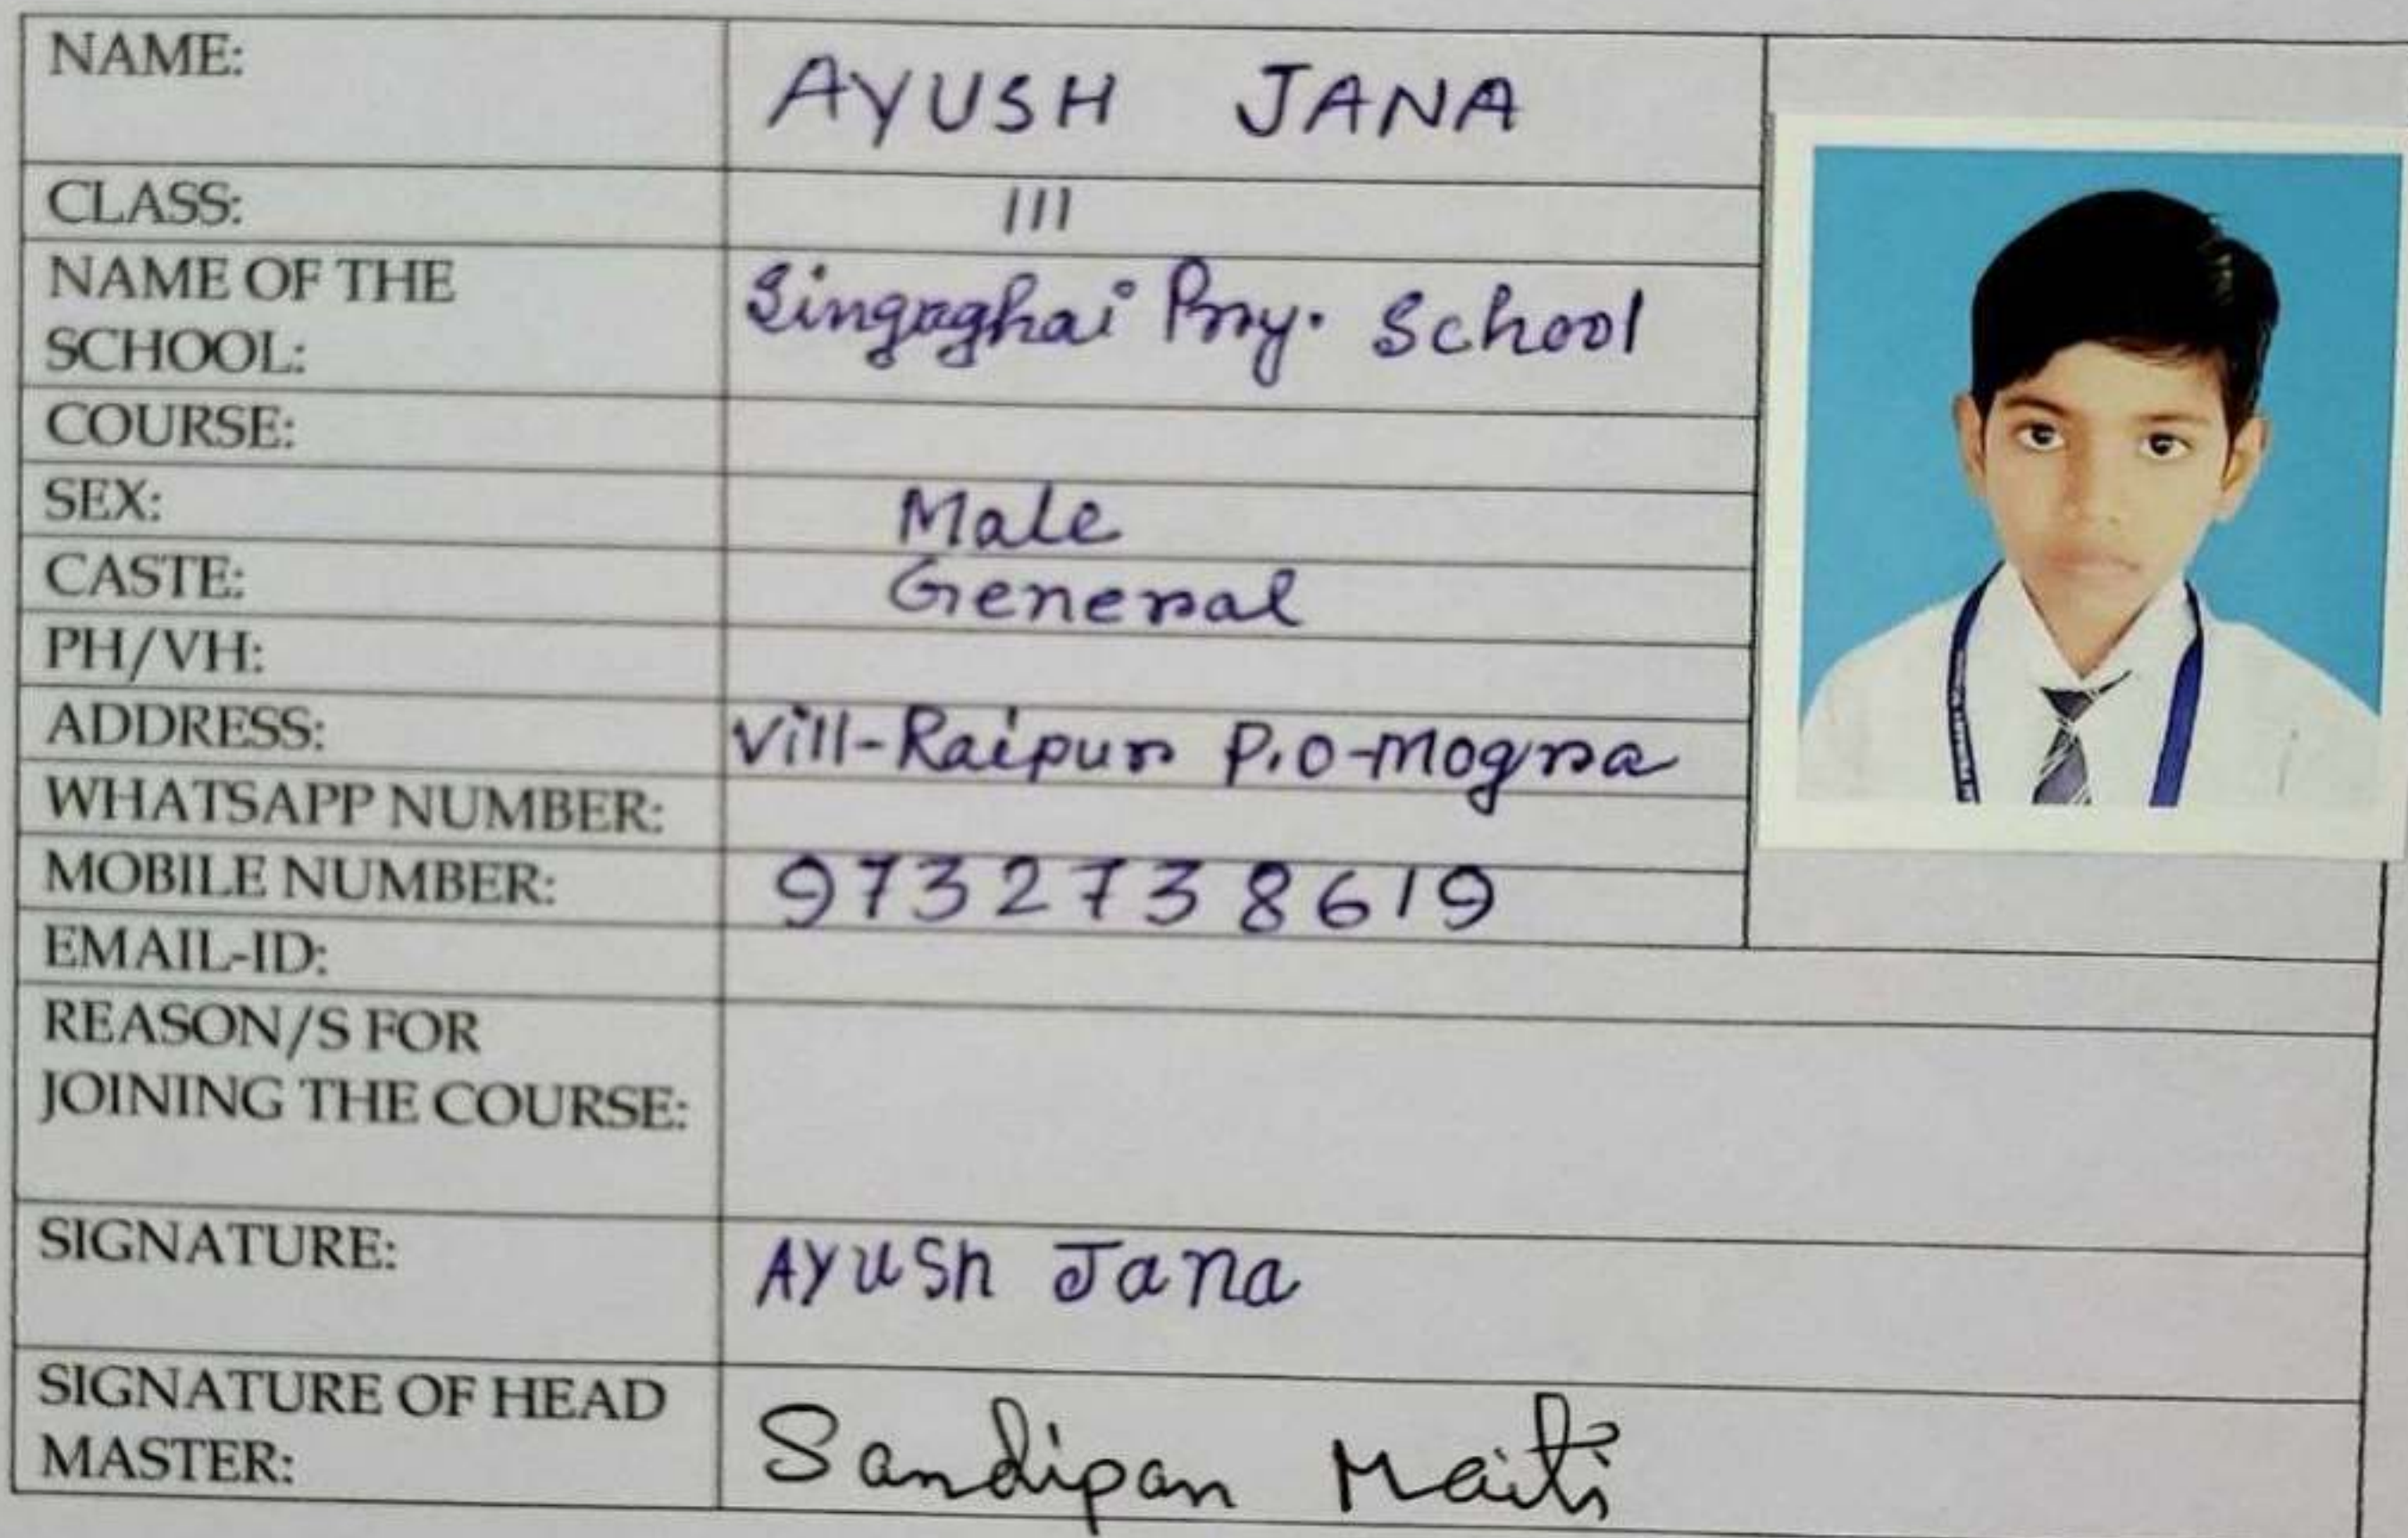 NAME: AYUSH JANA
CLASS: III
NAME OF THE
SCHOOL: Singaghai Pry. School
COURSE:
SEX: Male
CASTE: General
PH/VH:
ADDRESS: Vill-Raipur P.O-Mogra
WHATSAPP NUMBER:
MOBILE NUMBER: 9732738619
EMAIL-ID:
REASON/S FOR
JOINING THE COURSE:
SIGNATURE: Ayush Jana
SIGNATURE OF HEAD
MASTER: Sandipan Maiti